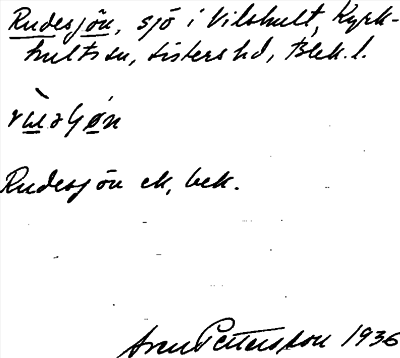 Rudesjön, sjö i Vilshult, Kyrk-
hults sn, Listers hd, Blek. l.
Rudesjön ek, bek.
Sven Pettersson 1936